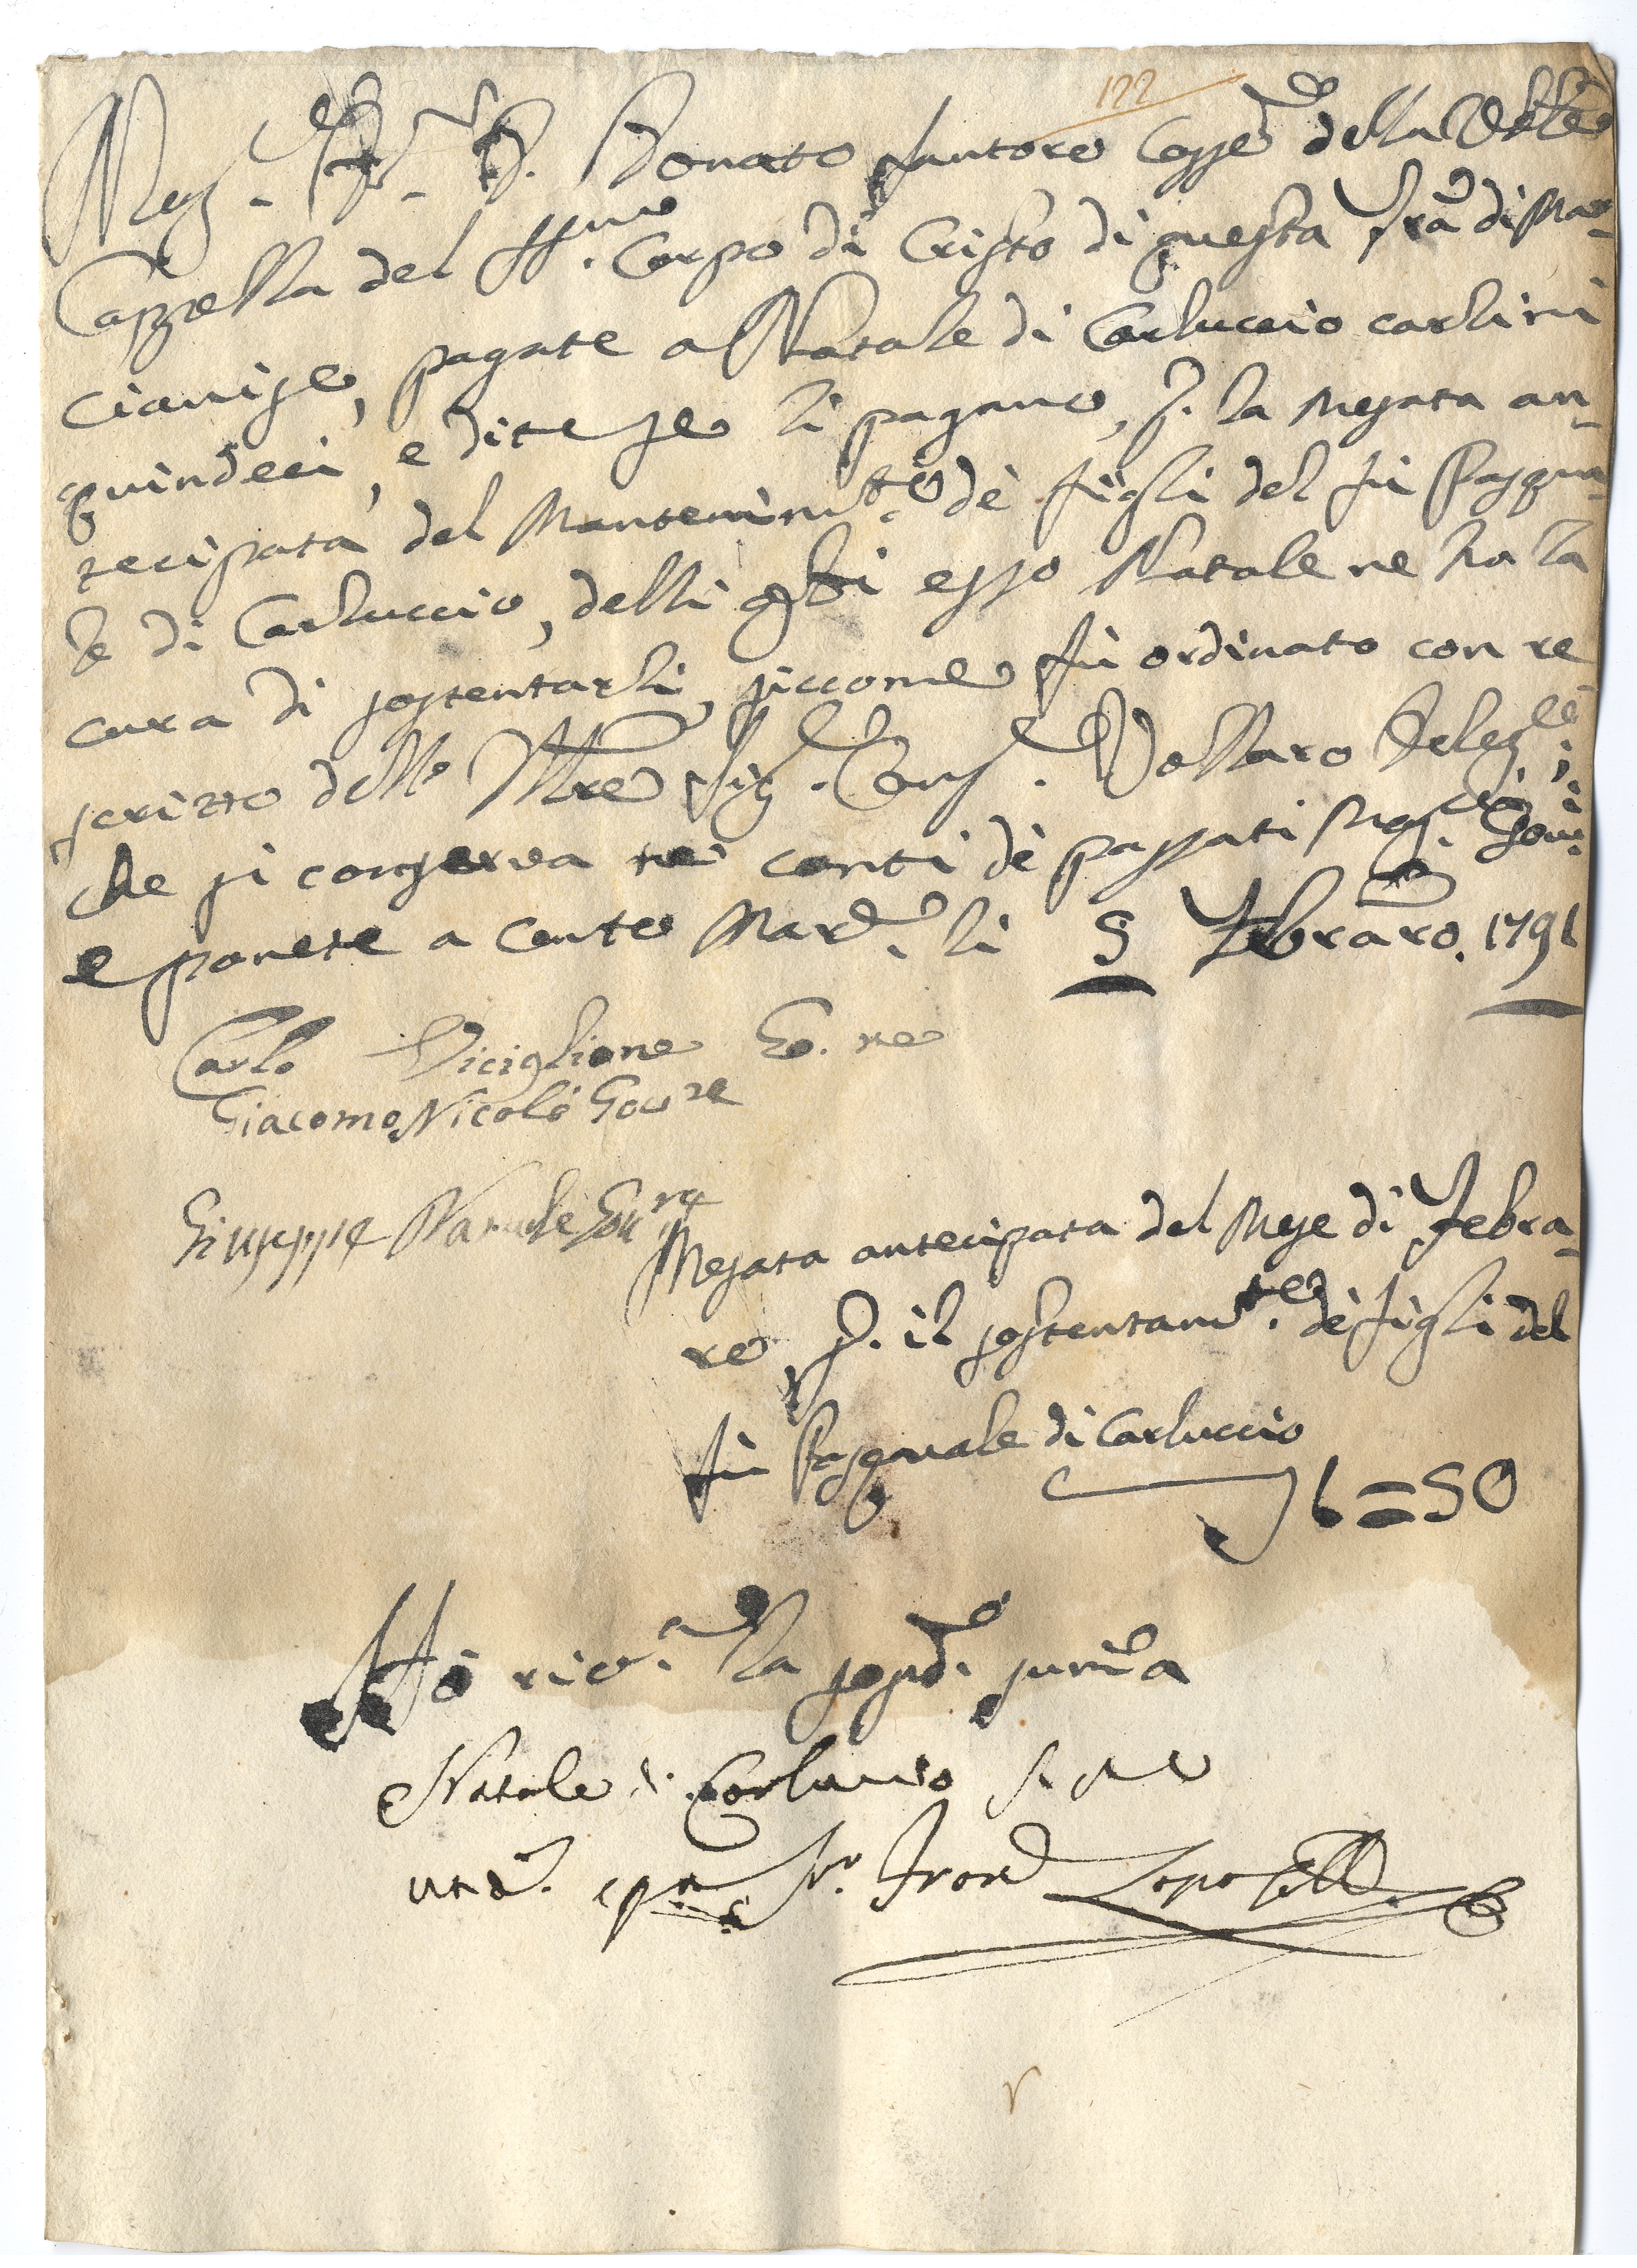 122
Mag.co Sig.r D. Donato Santoro Casse della Vble
Cappella del SSmo. Corpo di Cristo di questa Tra di Mar-
cianise, pagate a Natale di Carluccio carlini
quindeci, e dite se li pagano, p. la mesata an-
tecipata del Mantenimto. dè figli del fù Pasqua-
le di Carluccio, delli qli esso Natale ne ha la
cura di sostentarli, siccome fù ordinato con re
scritto dello Illre Sig. Cons. Vollaro Deleg.to
che si conserva ne' conti dè passati Mag.ci Gov.i
e ponete a conto Mard. li 5 Febraro. 1791
Carlo Diciglione Go.re
Giacomo Nicolò Gov.re
Giuseppe Natale Gov.re
Mesata antecipata del Mese di Febra-
ro, p. il sostentamto. dè figli del
fù Pasquale di Carluccio
1=50
Hò ric. la sopd. summa
Natale di Carluccio